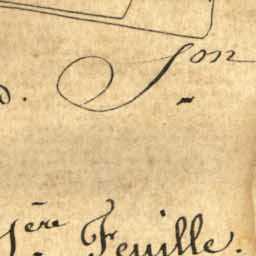 d. Son
1ère Feuille.